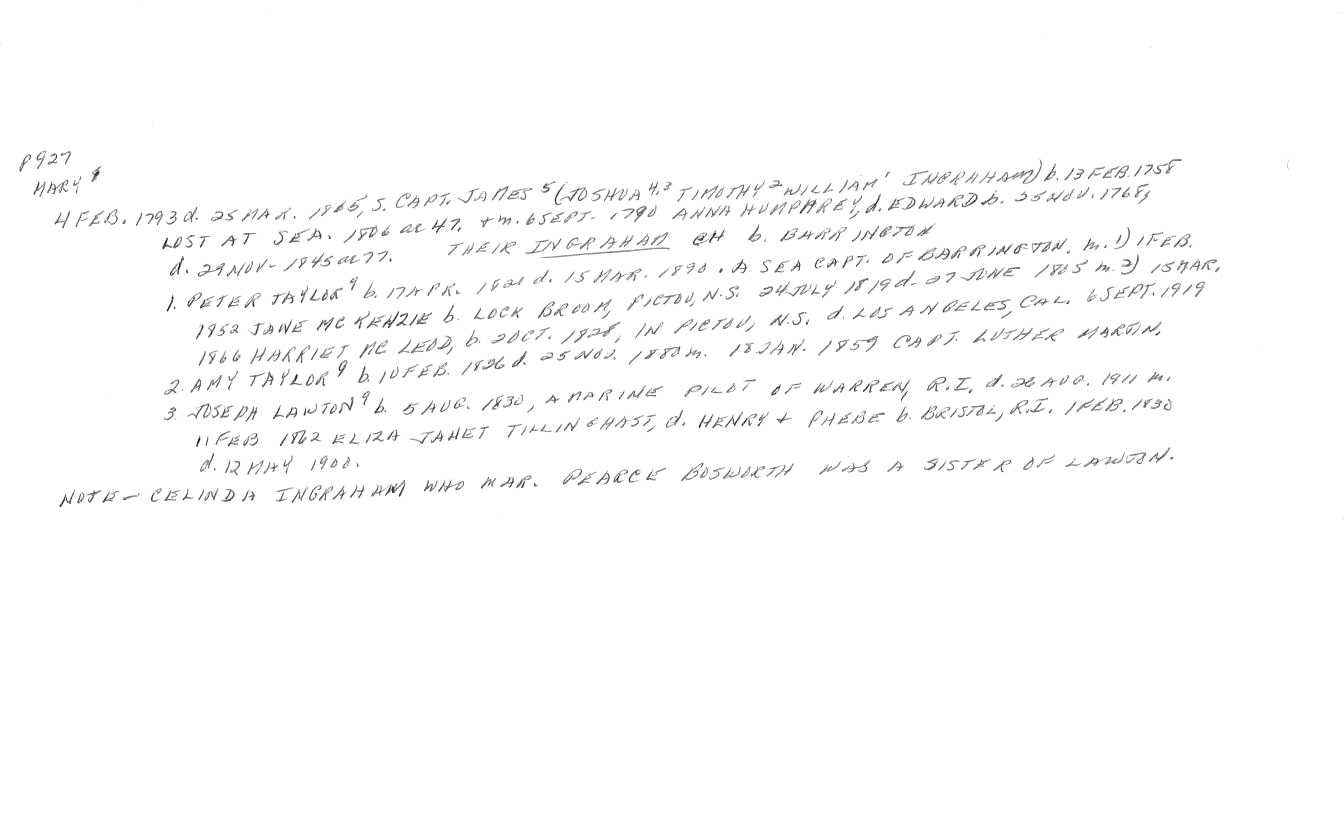 P927
MARY 9
4 FEB. 1793 d. 25 MAR. 1865, S. CAPT. JAMES 5 (JOSHUA 4,3 TIMOTHY 2 WILLIAM 1 INGRAHAM) b. 13 FEB. 1758
LOST AT SEA. 1806 ae 47. + m. 6 SEPT. 1790 ANNA HUMPHREY, d. EDWARD b. 25 NOV. 1768,
d. 29 NOV- 1845 ae 77. THEIR INGRAHAM CH b. BARRINGTON
1. PETER TAYLOR 9 b. 17 APR. 1821 d. 15 MAR. 1890. A SEA CAPT. OF BARRINGTON. m. 1) 1 FEB.
1852 JANE MC KENZIE b. LOCK BROOM, PICTOU, N.S. 24 JULY 1819 d. 27 JUNE 1865 m. 2) 15 MAR.
1866 HARRIET MC LEOD, b. 2 OCT. 1828, IN PICTOU, N.S. d. LOS ANGELES, CAL. 6 SEPT. 1919
2. AMY TAYLOR 9 b. 10 FEB. 1826 d. 25 NOV. 1880 m. 18 JAN. 1859 CAPT. LUTHER MARTIN.
3. JOSEPH LAWTON 9 b. 5 AUG. 1830, A MARINE PILOT OF WARREN, R.I. d. 26 AUG. 1911 m.
11 FEB 1862 ELIZA JANET TILLINGHAST, d. HENRY + PHEBE b. BRISTOL, R.I. 1 FEB. 1830
d. 12 MAY 1900.
NOTE - CELINDA INGRAHAM WHO MAR. PEARCE BOSWORTH WAS A SISTER OF LAWTON.